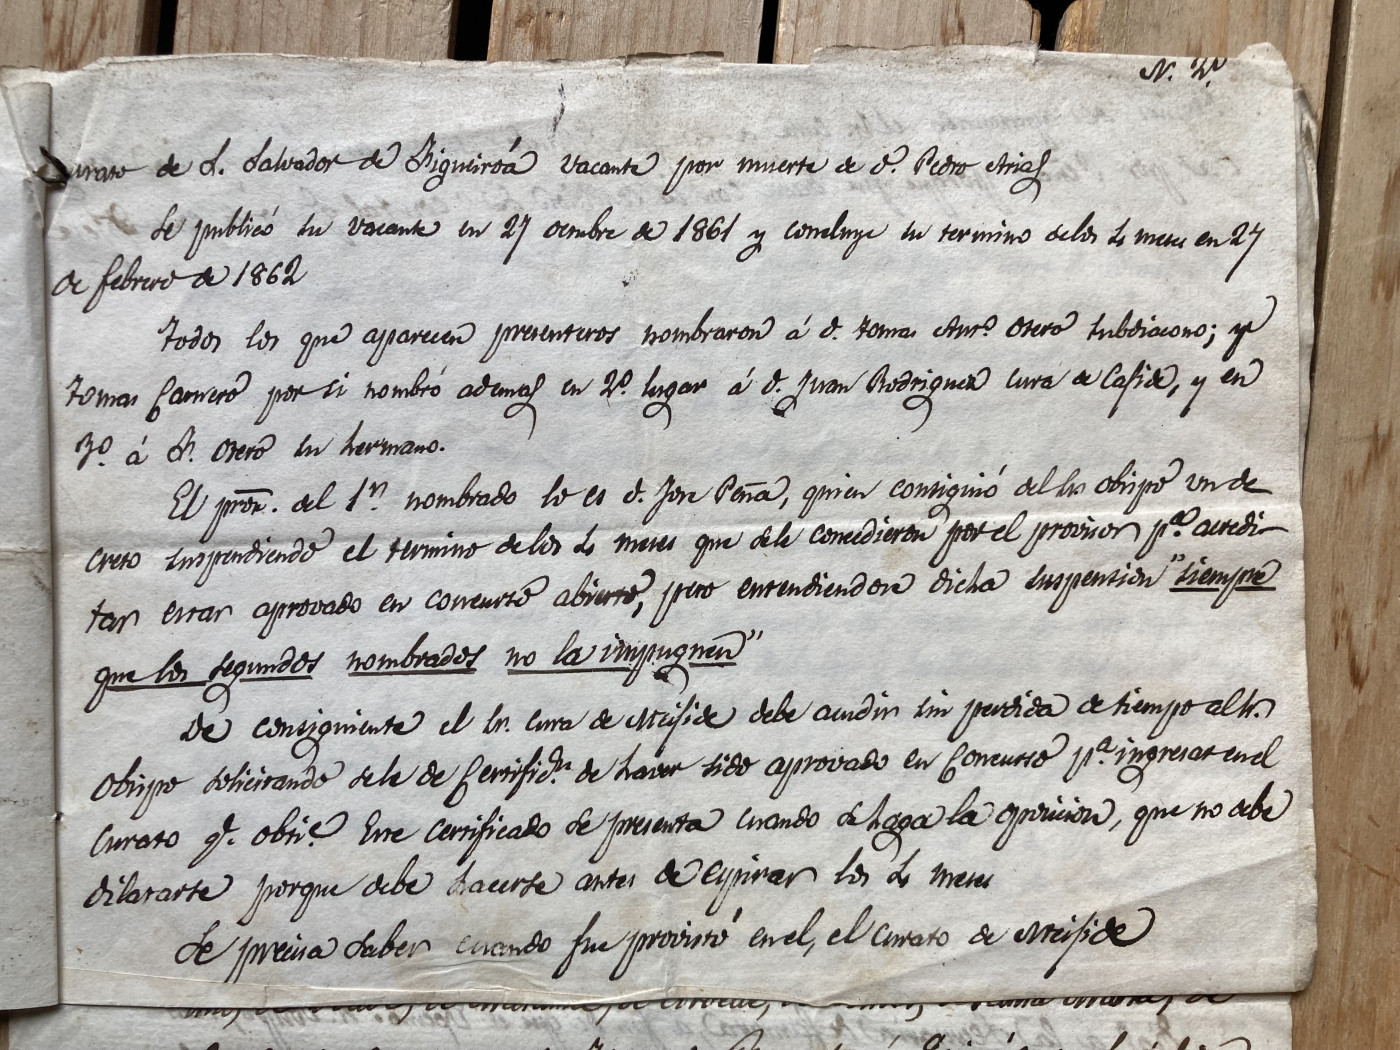 N. 2º
Curato de S. Salvador de Figueiroá vacante por muerte de d. Pedro Arias
Se publicó su vacante en 27 octubre de 1861 y concluye su termino delos 4 meses en 27
de febrero de 1862
Todos los que aparecen presenteros nombraron á d. Tomas Ant.º Otero subdiacono; y
Tomas Carnero por si nombró ademas en 2º. lugar á d. Juan Rodriguez cura de Caside, y en
3º. á F. Otero su hermano.
El pror. del 1º nombrado lo es d. Jose Peña, quien consiguió del Sr obispo un de
creto suspendiendo el termino delos 4 meses que sele concedieron por el provisor pª. acredi-
tar estar aprovado en concurso abierto, pero entendiendose dicha suspension "siempre
que los segundos nombrados no la impugnen"
De consiguiente el Sr. cura de Meiside debe acudir sin perdida de tiempo al Sr.
obispo solicitando sele de Certific.n de haver sido aprovado en Concurso pª. ingresar en el
Curato q.e obti.e Este certificado se presenta cuando se haga la oposicion, que no debe
dilatarse porque debe hacerse antes de espirar los 4 meses
Se precisa saber cuando fue provisto en el, el curato de Meiside